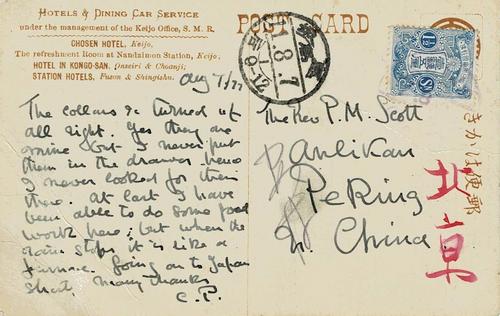 HOTELS & DINING CAR SERVICE
under the management of the Keijo Office, S. M. R.
CHOSEN HOTEL, Keijo.
The refreshment Room at Nandaimon Station, Keijo;
HOTEL IN KONGO-SAN, Onseiri & Choanji;
STATION HOTELS, Fusan & Shingishu.
Aug 7/22
The collars &c turned up
all right. Yes they are
mine but I never put
them in the drawer hence
I never looked for them
there. At last I have
been able to do some good
work here; but when the
rain stops it is like a
furnace. Going on to Japan
short, many thanks
C. P.
POST CARD
11.8.7
The Rev P. M. Scott
Anglikan
Peking
N. China
きかは便郵
北京